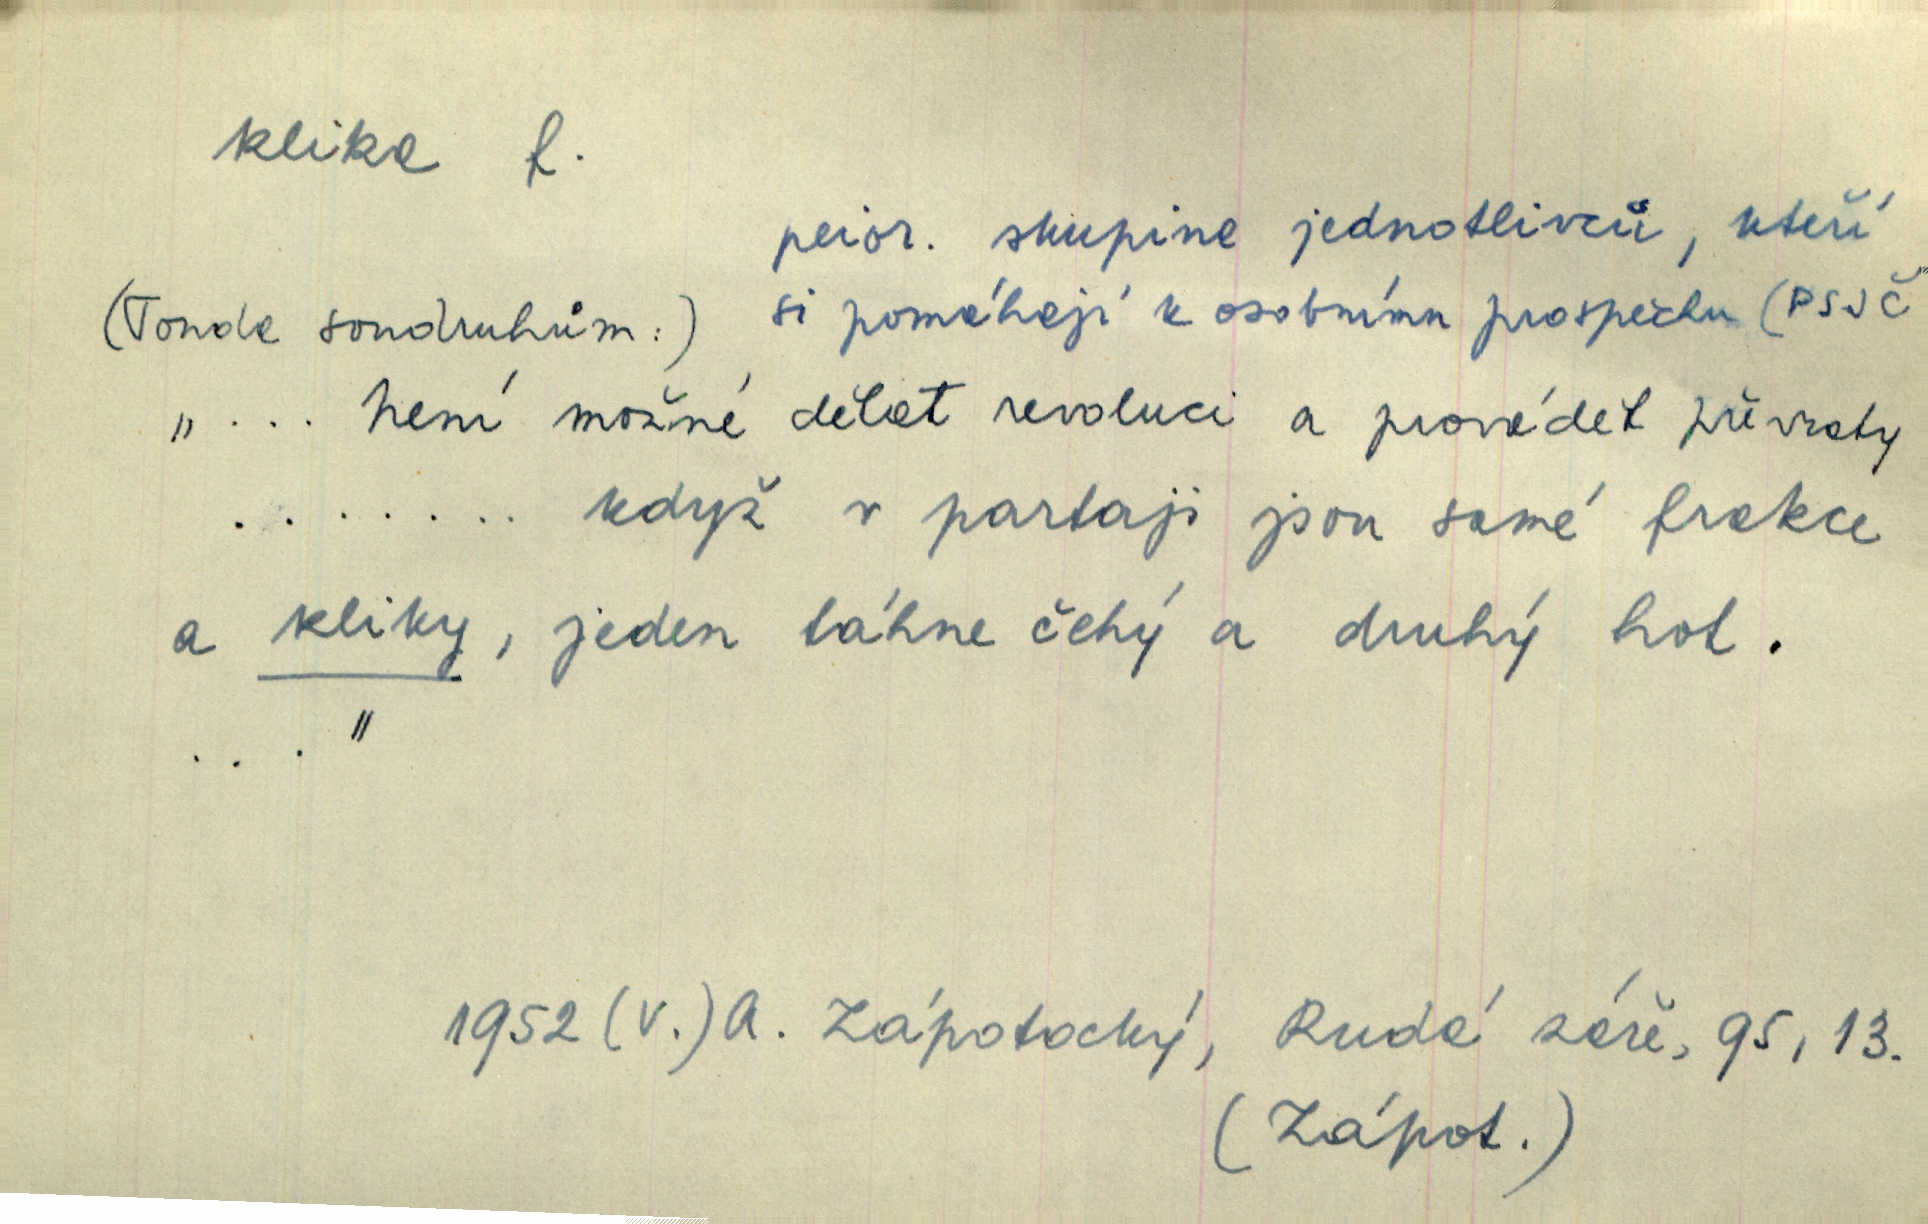 klika f.
peior. skupina jednotlivců, kteří
(Tonda soudruhům:) si pomáhají k osobnímu prospěchu (PSJČ
„... není možné dělat revoluci a provádět převraty
........ když v partaji jsou samé frakce
a kliky, jeden táhne čehý a druhý hot.
..."
1952 (V.) A. Zápotocký, Rudá záře, 95, 13.
(Zápot.)